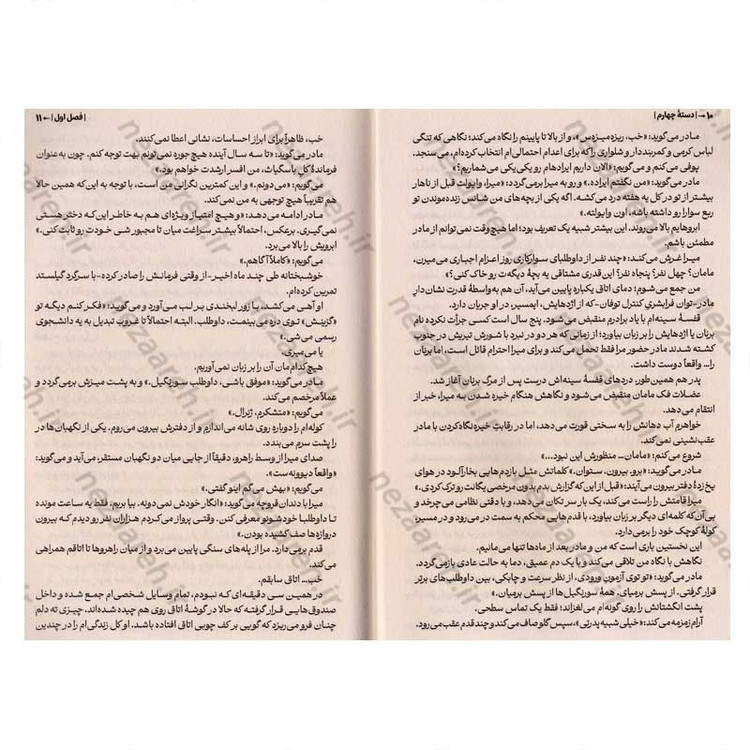 ۱۰ → | دستهٔ چهارم |
مادر می‌گوید: «خب، ریزه‌میزه‌س»، و از بالا تا پایینم را نگاه می‌کند؛ نگاهی که تنگی
لباس کرمی و کمربنددار و شلواری را که برای اعدام احتمالی‌ام انتخاب کرده‌ام، می‌سنجد.
پوفی می‌کنم و می‌گویم: «الان داریم ایرادهام رو یکی‌یکی می‌شماریم؟»
مادر می‌گوید: «من نگفتم ایراده.» و رو به میرا برمی‌گردد: «میرا، وایولت قبل از ناهار
بیشتر از تو در کل یه هفته درد می‌کشه. اگه یکی از بچه‌های من شانس زنده‌موندن تو
ربع سوارا رو داشته باشه، اون وایولته.»
ابروهایم بالا می‌روند. این بیشتر شبیه یک تعریف بود؛ اما هیچ‌وقت نمی‌توانم از مادر
مطمئن باشم.
میرا غرش می‌کند: «چند نفر از داوطلبای سوارکاری روز اعزام اجباری می‌میرن،
مامان؟ چهل نفر؟ پنجاه نفر؟ این‌قدری مشتاقی یه بچهٔ دیگه‌ت رو خاک کنی؟»
من جمع می‌شوم؛ دمای اتاق یکباره پایین می‌آید، آن هم به‌واسطهٔ قدرت نشان‌دارِ
مادر-توان فرابشریِ کنترل توفان- که از اژدهایش، ایمسیر، در او جریان دارد.
قفسهٔ سینه‌ام با یاد برادرم منقبض می‌شود. پنج سال است کسی جرأت نکرده نام
برنان یا اژدهایش را بر زبان بیاورد؛ از زمانی که هر دو در نبرد با شورش تیریش در جنوب
کشته شدند. مادر حضور مرا فقط تحمل می‌کند و برای میرا احترام قائل است، اما برنان
را... واقعاً دوست داشت.
پدر هم همین‌طور. دردهای قفسهٔ سینه‌اش درست پس از مرگ برنان آغاز شد.
عضلات فک مامان منقبض می‌شود و نگاهش هنگام خیره شدن به میرا، خبر از
انتقام می‌دهد.
خواهرم آب دهانش را به سختی قورت می‌دهد، اما در رقابتِ خیره‌نگاه‌کردن با مادر
عقب‌نشینی نمی‌کند.
شروع می‌کنم: «مامان... منظورش این نبود...»
مادر می‌گوید: «برو، بیرون، ستوان.» کلماتش مثل بازدم‌هایی بخارآلود در هوای
یخ‌زدهٔ دفتر بیرون می‌آیند: «قبل از این‌که گزارش بدم بدون مرخصی یگانت رو ترک کردی.»
میرا قامتش را راست می‌کند، یک بار سر تکان می‌دهد، و با دقتی نظامی می‌چرخد و
بی‌آن‌که کلمه‌ای دیگر بر زبان بیاورد، با قدم‌هایی محکم به سمت در می‌رود و در مسیر،
کولهٔ کوچک خود را برمی‌دارد.
این نخستین باری است که من و مادر بعد از ماه‌ها تنها می‌مانیم.
نگاهش با نگاه من تلاقی می‌کند و با یک دم عمیق، دما به حالت عادی بازمی‌گردد.
مادر می‌گوید: «تو توی آزمون ورودی، از نظر سرعت و چابکی، بین داوطلب‌های برتر
قرار گرفتی. از پسش برمیای. همهٔ سورنگیل‌ها از پسش برمیان.»
پشت انگشتانش را روی گونه‌ام می‌لغزاند؛ فقط یک تماس سطحی.
آرام زمزمه می‌کند: «خیلی شبیه پدرتی»، سپس گلو صاف می‌کند و چند قدم عقب می‌رود.
| فصل اول | ← ۱۱
خب، ظاهراً برای ابراز احساسات، نشانی اعطا نمی‌کنند.
مادر می‌گوید: «تا سه سال آینده هیچ جوره نمی‌تونم بهت توجه کنم. چون به‌عنوان
فرماندهٔ کل باسگیاث، من افسر ارشدت خواهم بود.»
می‌گویم: «می‌دونم.» و این کمترین نگرانی من است، با توجه به این‌که همین حالا
هم تقریباً هیچ توجهی به من نمی‌کند.
مادر ادامه می‌دهد: «و هیچ امتیاز ویژه‌ای هم به خاطر این‌که دختر هستی
نمی‌گیری. برعکس، احتمالاً بیشتر سراغت میان تا مجبور شی خودت رو ثابت کنی.»
ابرویش را بالا می‌برد.
می‌گویم: «کاملاً آگاهم.»
خوشبختانه طی چند ماه اخیر-از وقتی فرمانش را صادر کرده- با سرگرد گیلستد
تمرین کرده‌ام.
او آهی می‌کشد، با زور لبخندی بر لب می‌آورد و می‌گوید: «فکر کنم دیگه تو
«گزینش» توی دره می‌بینمت، داوطلب. البته احتمالاً تا غروب تبدیل به یه دانشجوی
رسمی می‌شی.»
یا می‌میری.
هیچ‌کدام‌مان آن را بر زبان نمی‌آوریم.
مادر می‌گوید: «موفق باشی، داوطلب سورنگیل.» و به پشت میزش برمی‌گردد و
عملاً مرخصم می‌کند.
می‌گویم: «متشکرم، ژنرال.»
کوله‌ام را دوباره روی شانه می‌اندازم و از دفترش بیرون می‌روم. یکی از نگهبان‌ها در
را پشت سرم می‌بندد.
صدای میرا از وسط راهرو، دقیقاً از جایی میان دو نگهبان مستقر، می‌آید و می‌گوید:
«واقعاً دیوونه‌ست.»
می‌گویم: «بهش می‌گم اینو گفتی.»
میرا با دندان قروچه می‌گوید: «انگار خودش نمی‌دونه. بیا بریم. فقط یه ساعت مونده
تا داوطلبا خودشونو معرفی کنن. وقتی پرواز می‌کردم هزاران نفر رو دیدم که بیرون
دروازه‌ها صف کشیده بودن.»
قدم برمی‌دارد. مرا از پله‌های سنگی پایین می‌برد و از میان راهروها تا اتاقم همراهی
می‌کند.
خب... اتاق سابقم.
در همین سی دقیقه‌ای که نبودم، تمام وسایل شخصی‌ام جمع شده و داخل
صندوق‌هایی قرار گرفته که حالا در گوشهٔ اتاق روی هم چیده شده‌اند. چیزی ته دلم
چنان فرو می‌ریزد که گویی بر کف چوبی اتاق افتاده باشد. او کل زندگی‌ام را در چندین
nezaareh.ir